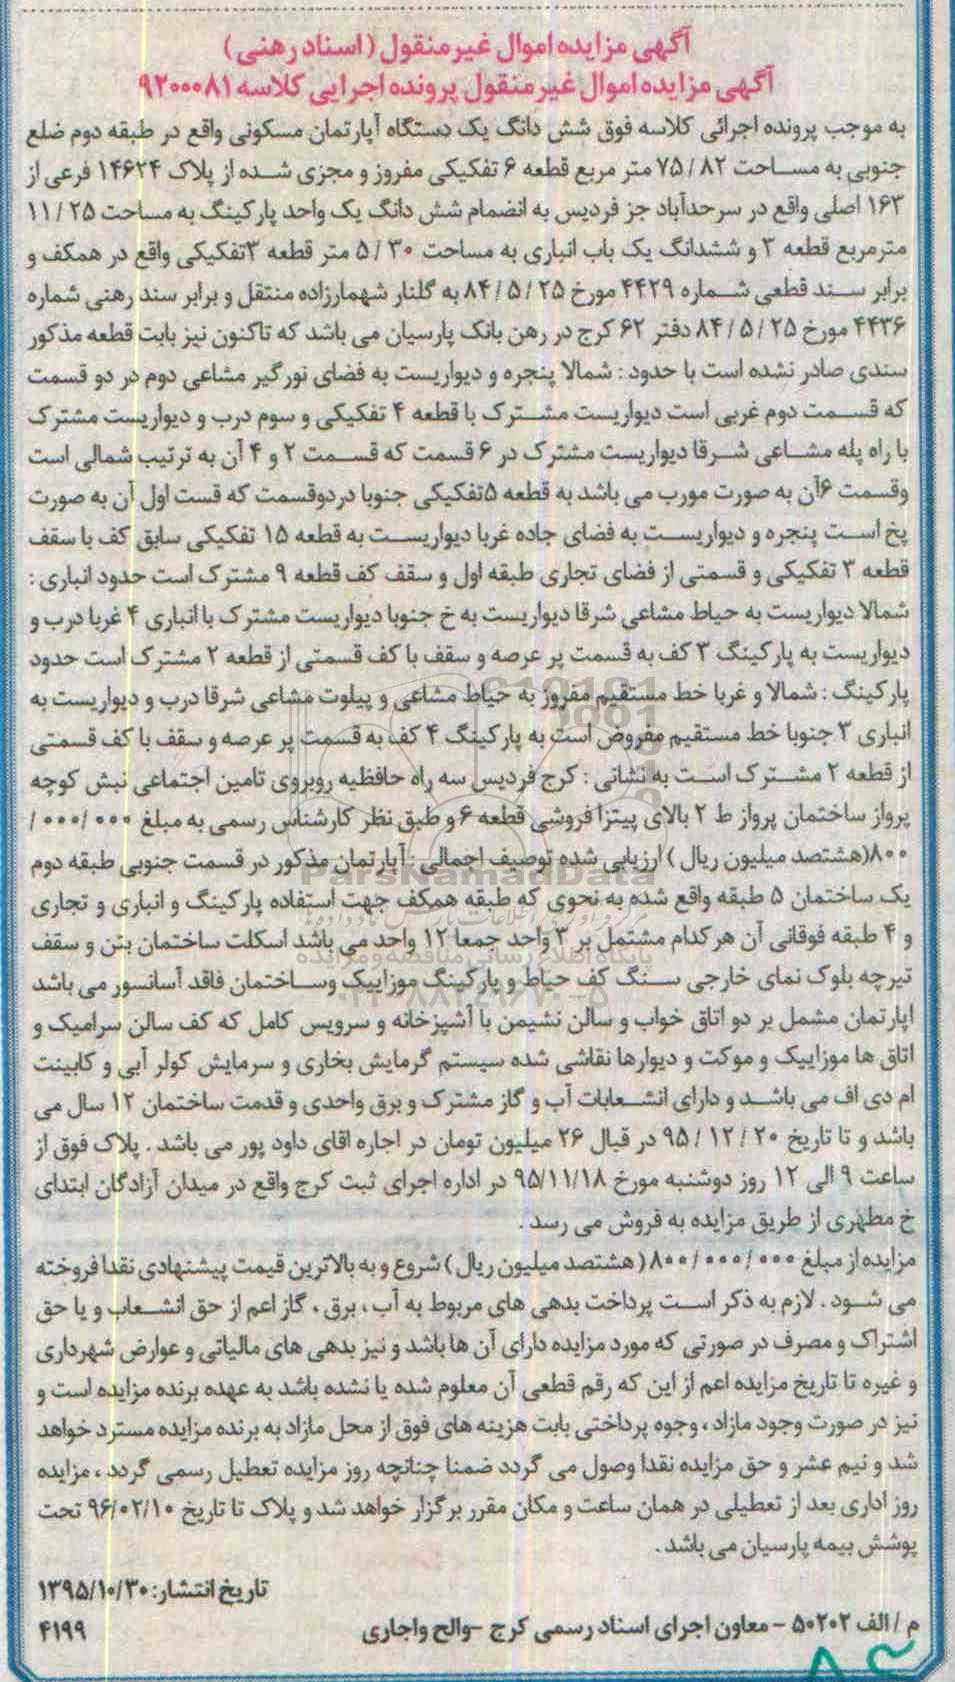 آگهی مزایده اموال غیرمنقول (اسناد رهنی)
آگهی مزایده اموال غیرمنقول پرونده اجرایی کلاسه ۹۲۰۰۰۸۱
به موجب پرونده اجرائی کلاسه فوق شش دانگ یک دستگاه آپارتمان مسکونی واقع در طبقه دوم ضلع
جنوبی به مساحت ۷۵/۸۲ متر مربع قطعه ۶ تفکیکی مفروز و مجزی شده از پلاک ۱۴۶۲۴ فرعی از
۱۶۳ اصلی واقع در سرحدآباد جز فردیس به انضمام شش دانگ یک واحد پارکینگ به مساحت ۱۱/۲۵
مترمربع قطعه ۳ و ششدانگ یک باب انباری به مساحت ۵/۳۰ متر قطعه ۳تفکیکی واقع در همکف و
برابر سند قطعی شماره ۴۴۲۹ مورخ ۸۴/۵/۲۵ به گلنار شهمارزاده منتقل و برابر سند رهنی شماره
۴۴۳۶ مورخ ۸۴/۵/۲۵ دفتر ۶۲ کرج در رهن بانک پارسیان می باشد که تاکنون نیز بابت قطعه مذکور
سندی صادر نشده است با حدود : شمالا پنجره و دیواریست به فضای نورگیر مشاعی دوم در دو قسمت
که قسمت دوم غربی است دیواریست مشترک با قطعه ۴ تفکیکی و سوم درب و دیواریست مشترک
با راه پله مشاعی شرقا دیواریست مشترک در ۶ قسمت که قسمت ۲ و ۴ آن به ترتیب شمالی است
وقسمت ۶آن به صورت مورب می باشد به قطعه ۵تفکیکی جنوبا دردوقسمت که قست اول آن به صورت
پخ است پنجره و دیواریست به فضای جاده غربا دیواریست به قطعه ۱۵ تفکیکی سابق کف با سقف
قطعه ۳ تفکیکی و قسمتی از فضای تجاری طبقه اول و سقف کف قطعه ۹ مشترک است حدود انباری :
شمالا دیواریست به حیاط مشاعی شرقا دیواریست به خ جنوبا دیواریست مشترک با انباری ۴ غربا درب و
دیواریست به پارکینگ ۳ کف به قسمت پر عرصه و سقف با کف قسمتی از قطعه ۲ مشترک است حدود
پارکینگ : شمالا و غربا خط مستقیم مفروز به حیاط مشاعی و پیلوت مشاعی شرقا درب و دیواریست به
انباری ۳ جنوبا خط مستقیم مفروض است به پارکینگ ۴ کف به قسمت پر عرصه و سقف با کف قسمتی
از قطعه ۲ مشترک است به نشانی : کرج فردیس سه راه حافظیه روبروی تامین اجتماعی نبش کوچه
پرواز ساختمان پرواز ط ۲ بالای پیتزا فروشی قطعه ۶ و طبق نظر کارشناس رسمی به مبلغ ۰۰۰/۰۰۰/
۸۰۰(هشتصد میلیون ریال ) ارزیابی شده توصیف اجمالی : آپارتمان مذکور در قسمت جنوبی طبقه دوم
یک ساختمان ۵ طبقه واقع شده به نحوی که طبقه همکف جهت استفاده پارکینگ و انباری و تجاری
و ۴ طبقه فوقانی آن هرکدام مشتمل بر ۳ واحد جمعا ۱۲ واحد می باشد اسکلت ساختمان بتن و سقف
تیرچه بلوک نمای خارجی سنگ کف حیاط و پارکینگ موزاییک وساختمان فاقد آسانسور می باشد
اپارتمان مشمل بر دو اتاق خواب و سالن نشیمن با آشپزخانه و سرویس کامل که کف سالن سرامیک و
اتاق ها موزاییک و موکت و دیوارها نقاشی شده سیستم گرمایش بخاری و سرمایش کولر آبی و کابینت
ام دی اف می باشد و دارای انشعابات آب و گاز مشترک و برق واحدی و قدمت ساختمان ۱۲ سال می
باشد و تا تاریخ ۹۵/۱۲/۲۰ در قبال ۲۶ میلیون تومان در اجاره اقای داود پور می باشد . پلاک فوق از
ساعت ۹ الی ۱۲ روز دوشنبه مورخ ۹۵/۱۱/۱۸ در اداره اجرای ثبت کرج واقع در میدان آزادگان ابتدای
خ مطهری از طریق مزایده به فروش می رسد .
مزایده از مبلغ ۸۰۰/۰۰۰/۰۰۰ ( هشتصد میلیون ریال ) شروع و به بالاترین قیمت پیشنهادی نقدا فروخته
می شود . لازم به ذکر است پرداخت بدهی های مربوط به آب ، برق ، گاز اعم از حق انشعاب و یا حق
اشتراک و مصرف در صورتی که مورد مزایده دارای آن ها باشد و نیز بدهی های مالیاتی و عوارض شهرداری
و غیره تا تاریخ مزایده اعم از این که رقم قطعی آن معلوم شده یا نشده باشد به عهده برنده مزایده است و
نیز در صورت وجود مازاد ، وجوه پرداختی بابت هزینه های فوق از محل مازاد به برنده مزایده مسترد خواهد
شد و نیم عشر و حق مزایده نقدا وصول می گردد ضمنا چنانچه روز مزایده تعطیل رسمی گردد ، مزایده
روز اداری بعد از تعطیلی در همان ساعت و مکان مقرر برگزار خواهد شد و پلاک تا تاریخ ۹۶/۰۲/۱۰ تحت
پوشش بیمه پارسیان می باشد .
تاریخ انتشار: ۱۳۹۵/۱۰/۳۰
م / الف ۵۰۲۰۲ - معاون اجرای اسناد رسمی کرج -والح واجاری
۴۱۹۹
ParsNamadData
پایگاه اطلاع رسانی مناقصه و مزایده